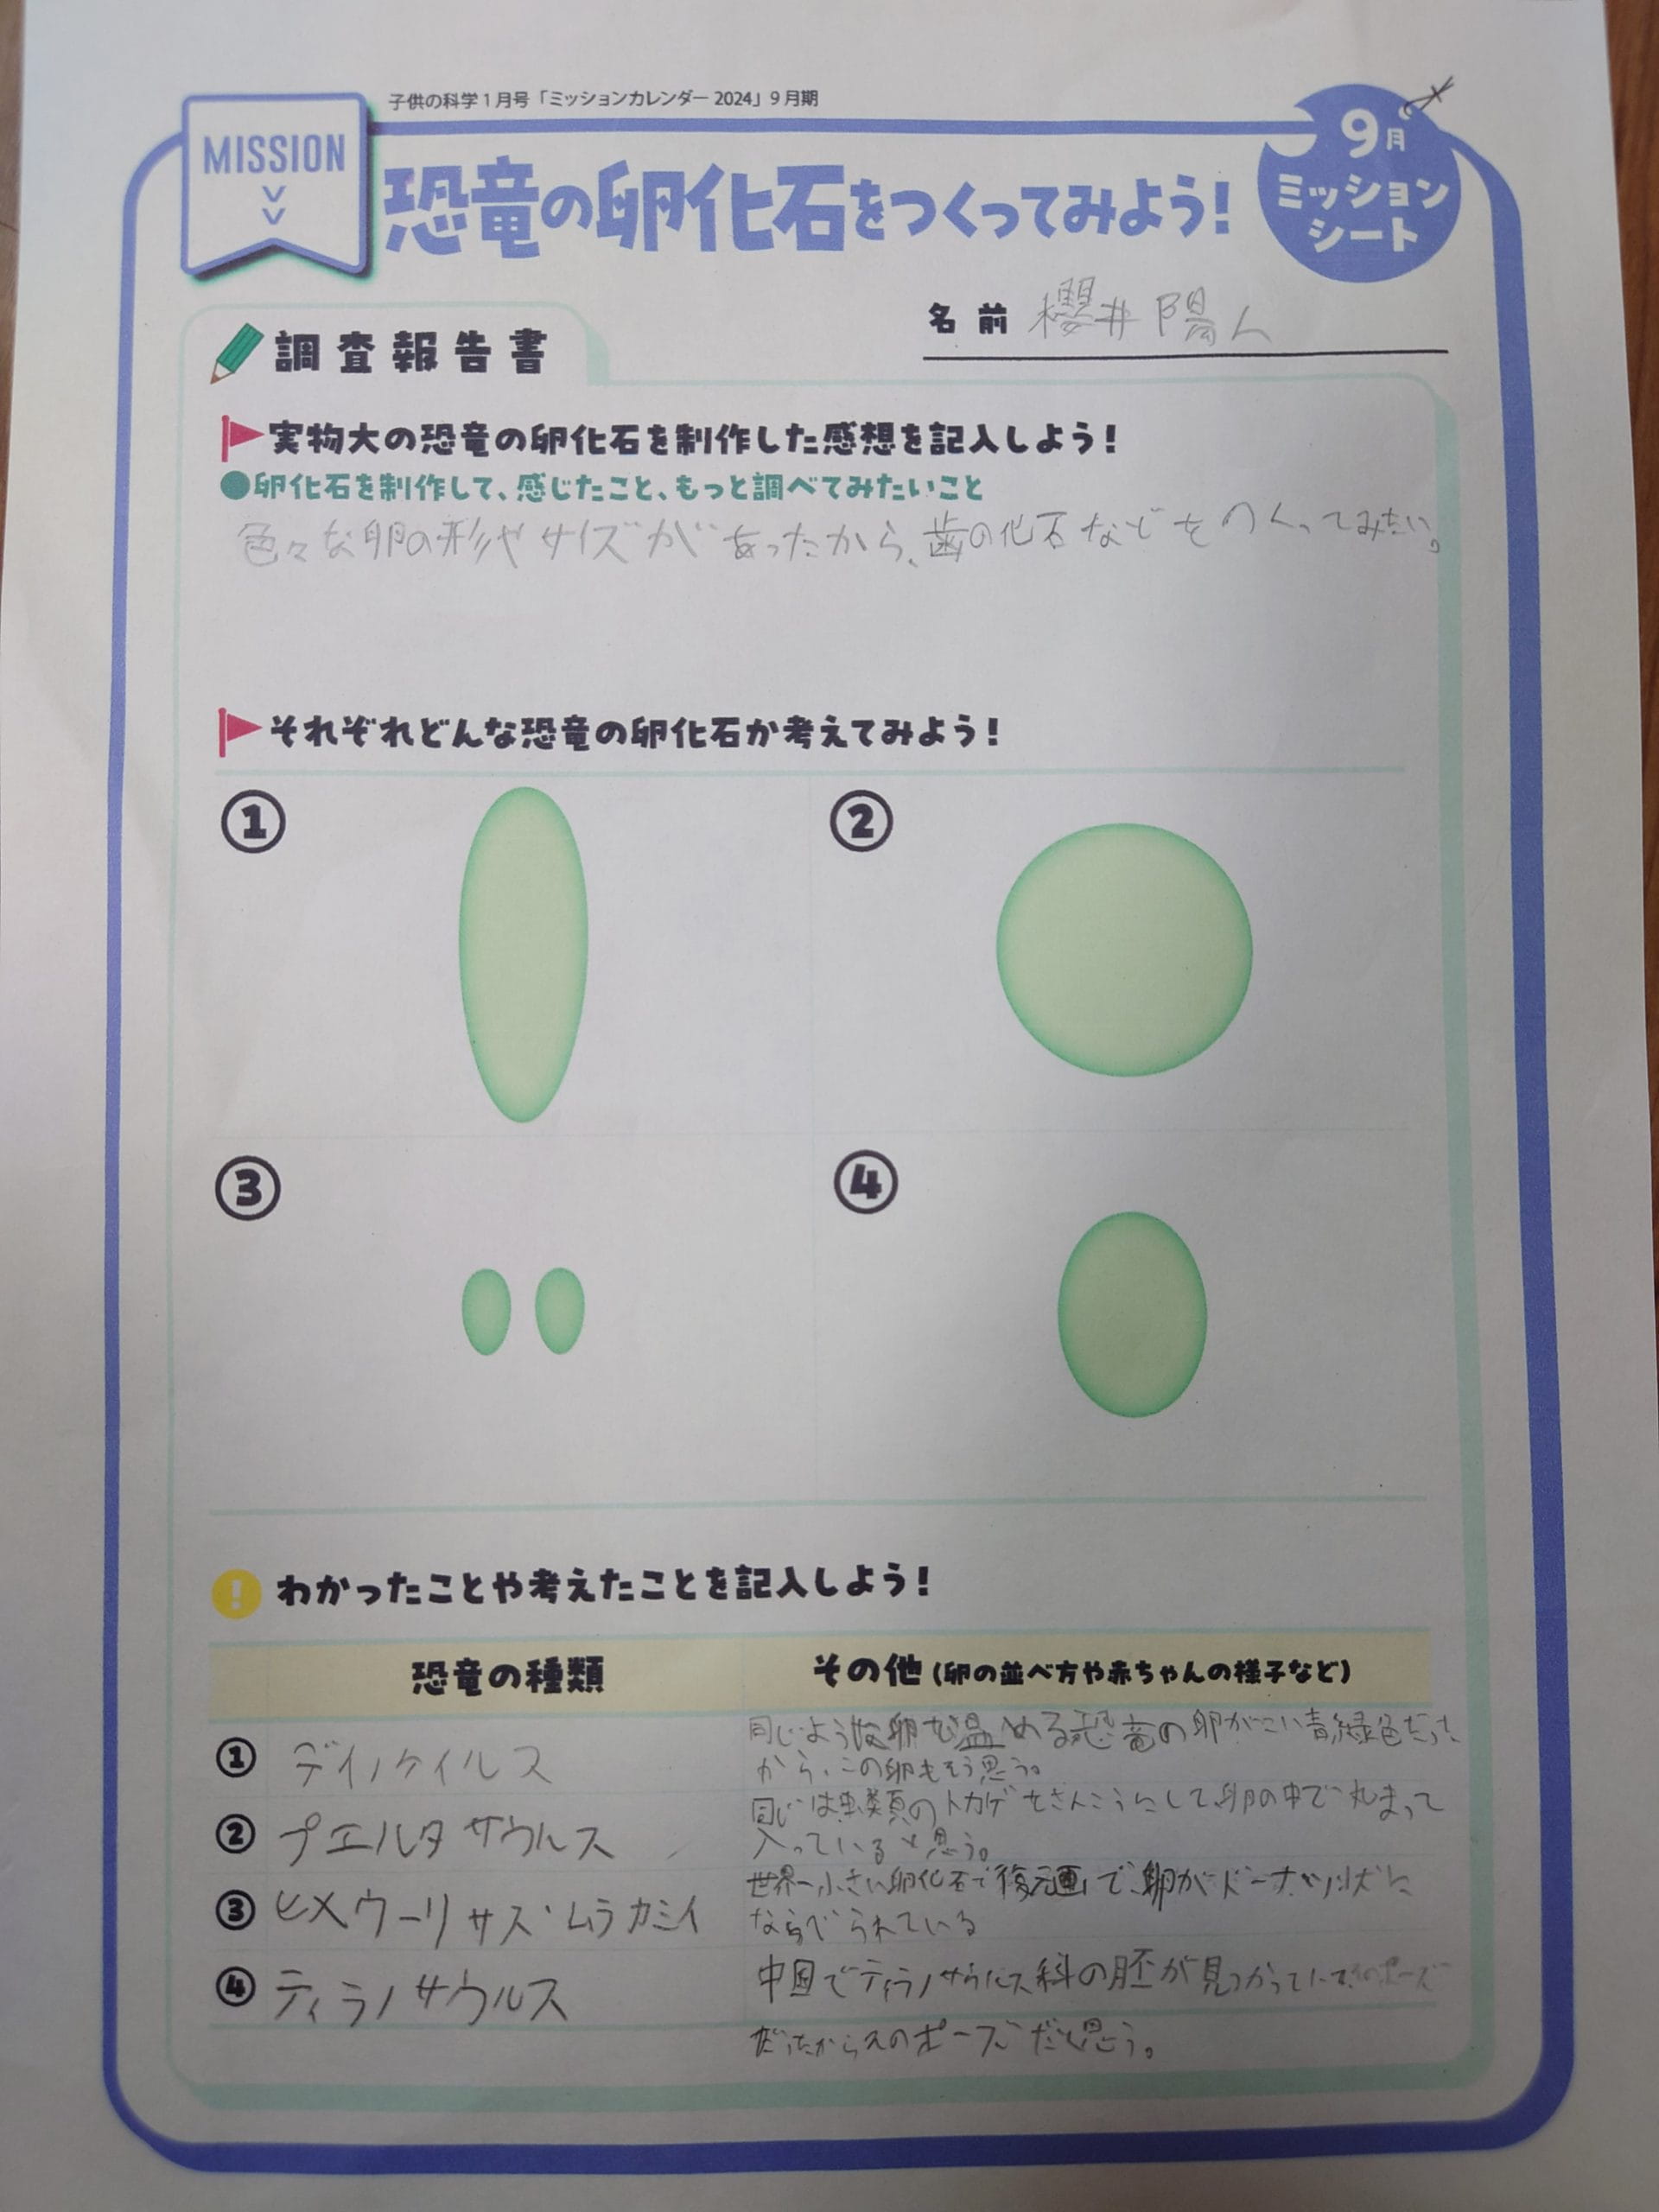 子供の科学1月号「ミッションカレンダー2024」9月期
MISSION
恐竜の卵化石をつくってみよう!
9月
ミッション
シート
名前 櫻井陽人
調査報告書
実物大の恐竜の卵化石を制作した感想を記入しよう!
●卵化石を制作して、感じたこと、もっと調べてみたいこと
色々な卵の形やサイズがあったから、歯の化石などをつくってみたい。
それぞれどんな恐竜の卵化石か考えてみよう!
①
②
③
④
! わかったことや考えたことを記入しよう!
恐竜の種類 その他(卵の並べ方や赤ちゃんの様子など)
① デイノケイルス 同じような卵を温める恐竜の卵がこい青緑色だった
から、この卵もそう思う。
② プエルタサウルス 同じは虫類のトカゲをさんこうにして卵の中で丸まって
入っていると思う。
③ ヒメウーリサス・ムラカミイ 世界一小さい卵化石で復元画で卵がドーナツ状に
ならべられている
④ ティラノサウルス 中国でティラノサウルス科の胚が見つかっていて
だったからそのポーズだと思う。